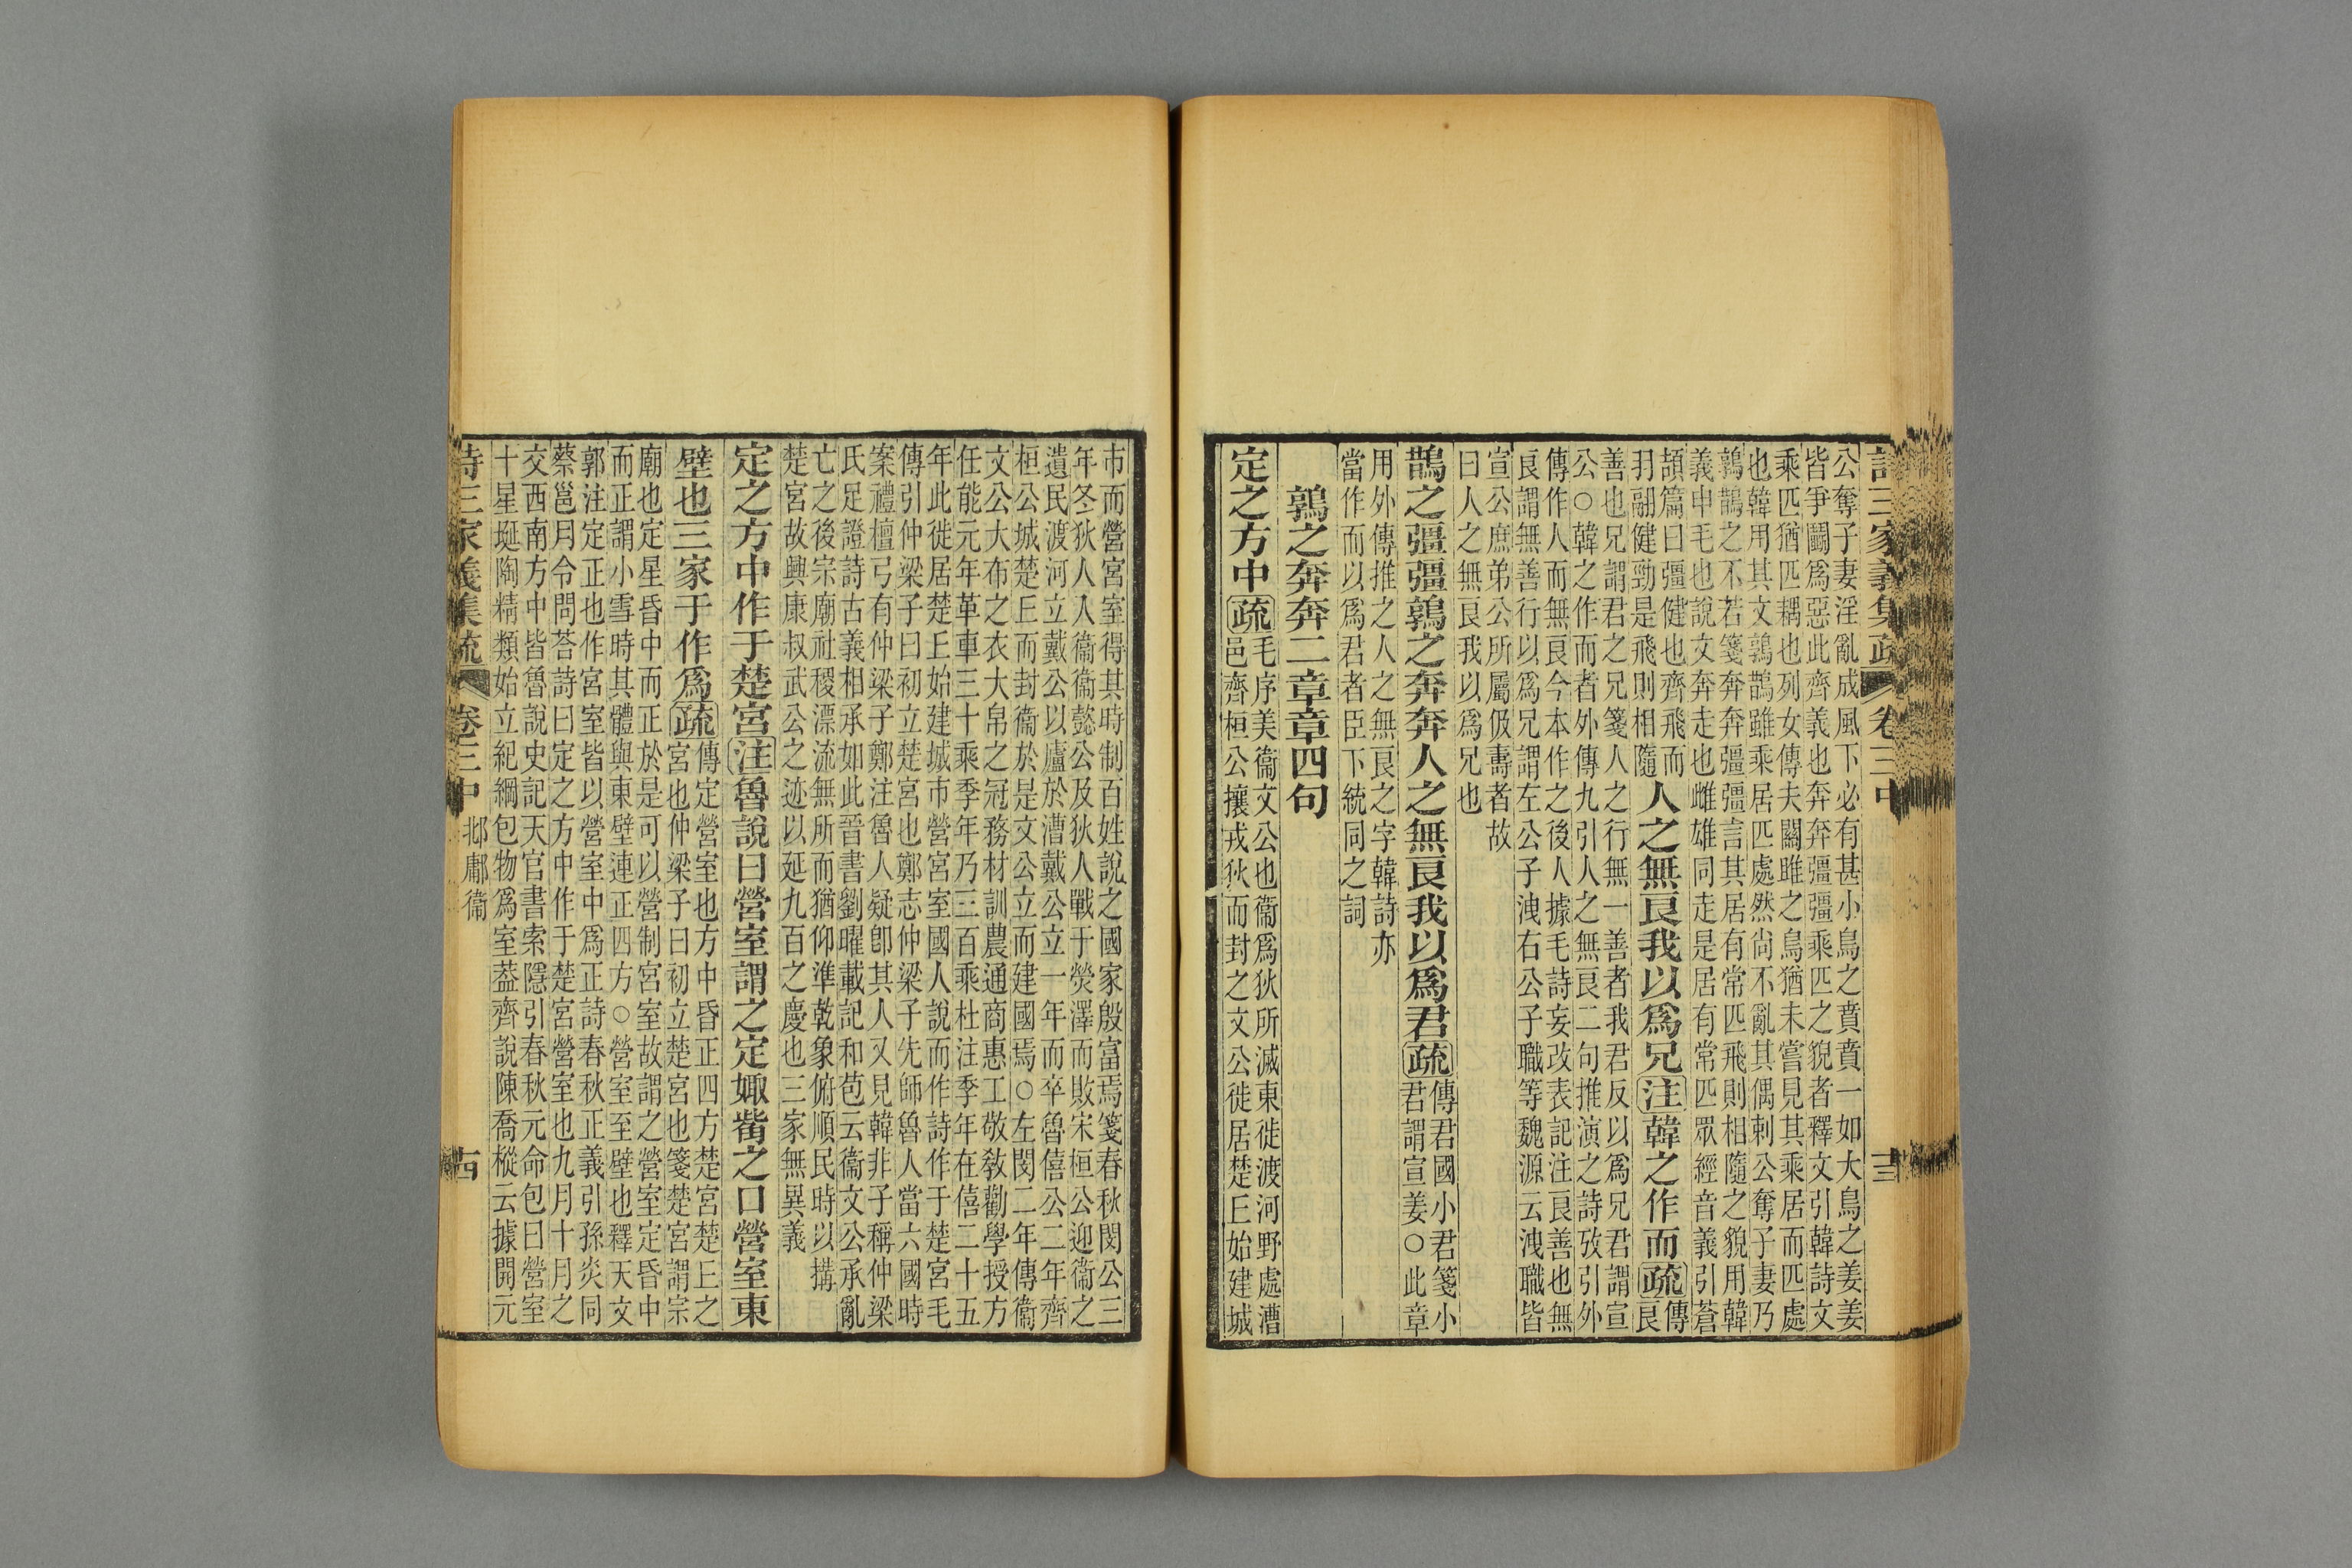 詩三家義集疏 卷三中 十三
公奪子妻淫亂成風下必有甚小鳥之賁賁一如大鳥之姜姜
皆爭鬭爲惡此齊義也奔奔彊彊乘匹之貌者釋文引韓詩文
乘匹猶匹耦也列女傳夫關雎之鳥猶未嘗見其乘居而匹處
也韓用其文鶉鵲雖乘居匹處然尚不亂其偶刺公奪子妻乃
鶉鵲之不若箋奔奔彊彊言其居有常匹飛則相隨之貌用韓
義申毛也說文奔走也雌雄同走是居有常匹眾經音義引蒼
頡篇曰彊健也齊飛而
羽翮健勁是飛則相隨
人之無良我以爲兄注韓之作而疏
傳
良
善也兄謂君之兄箋人之行無一善者我君反以爲兄君謂宣
公○韓之作而者外傳九引人之無良二句推演之詩攷引外
傳作人而無良今本作之後人據毛詩妄改表記注良善也無
良謂無善行以爲兄謂左公子洩右公子職等魏源云洩職皆
宣公庶弟公所屬伋壽者故
曰人之無良我以爲兄也
鵲之彊彊鶉之奔奔人之無良我以爲君疏
傳君國小君箋小
君謂宣姜○此章
用外傳推之人之無良之字韓詩亦
當作而以爲君者臣下統同之詞
鶉之奔奔二章章四句
定之方中疏
毛序美衞文公也衞爲狄所滅東徙渡河野處漕
邑齊桓公攘戎狄而封之文公徙居楚丘始建城
市而營宮室得其時制百姓說之國家殷富焉箋春秋閔公三
年冬狄人入衞衞懿公及狄人戰于熒澤而敗宋桓公迎衞之
遺民渡河立戴公以廬於漕戴公立一年而卒魯僖公二年齊
桓公城楚丘而封衞於是文公立而建國焉○左閔二年傳衞
文公大布之衣大帛之冠務材訓農通商惠工敬敎勸學授方
任能元年革車三十乘季年乃三百乘杜注季年在僖二十五
年此徙居楚丘始建城市營宮室國人說而作詩作于楚宮毛
傳引仲梁子曰初立楚宮也鄭志仲梁子先師魯人當六國時
案禮檀弓有仲梁子鄭注魯人疑卽其人又見韓非子稱仲梁
氏足證詩古義相承如此晉書劉曜載記和苞云衞文公承亂
亡之後宗廟社稷漂流無所而猶仰準乾象俯順民時以搆
楚宮故興康叔武公之迹以延九百之慶也三家無異義
定之方中作于楚宮注魯說曰營室謂之定娵觜之口營室東
壁也三家于作爲疏
傳定營室也方中昏正四方楚宮楚丘之
宮也仲梁子曰初立楚宮也箋楚宮謂宗
廟也定星昏中而正於是可以營制宮室故謂之營室定昏中
而正謂小雪時其體與東壁連正四方○營室至壁也釋天文
郭注定正也作宮室皆以營室中爲正詩春秋正義引孫炎同
蔡邕月令問荅詩曰定之方中作于楚宮營室也九月十月之
交西南方中皆魯說史記天官書索隱引春秋元命包曰營室
十星埏陶精類始立紀綱包物爲室葢齊說陳喬樅云據開元
詩三家義集疏 卷三中 邶鄘衞 十四